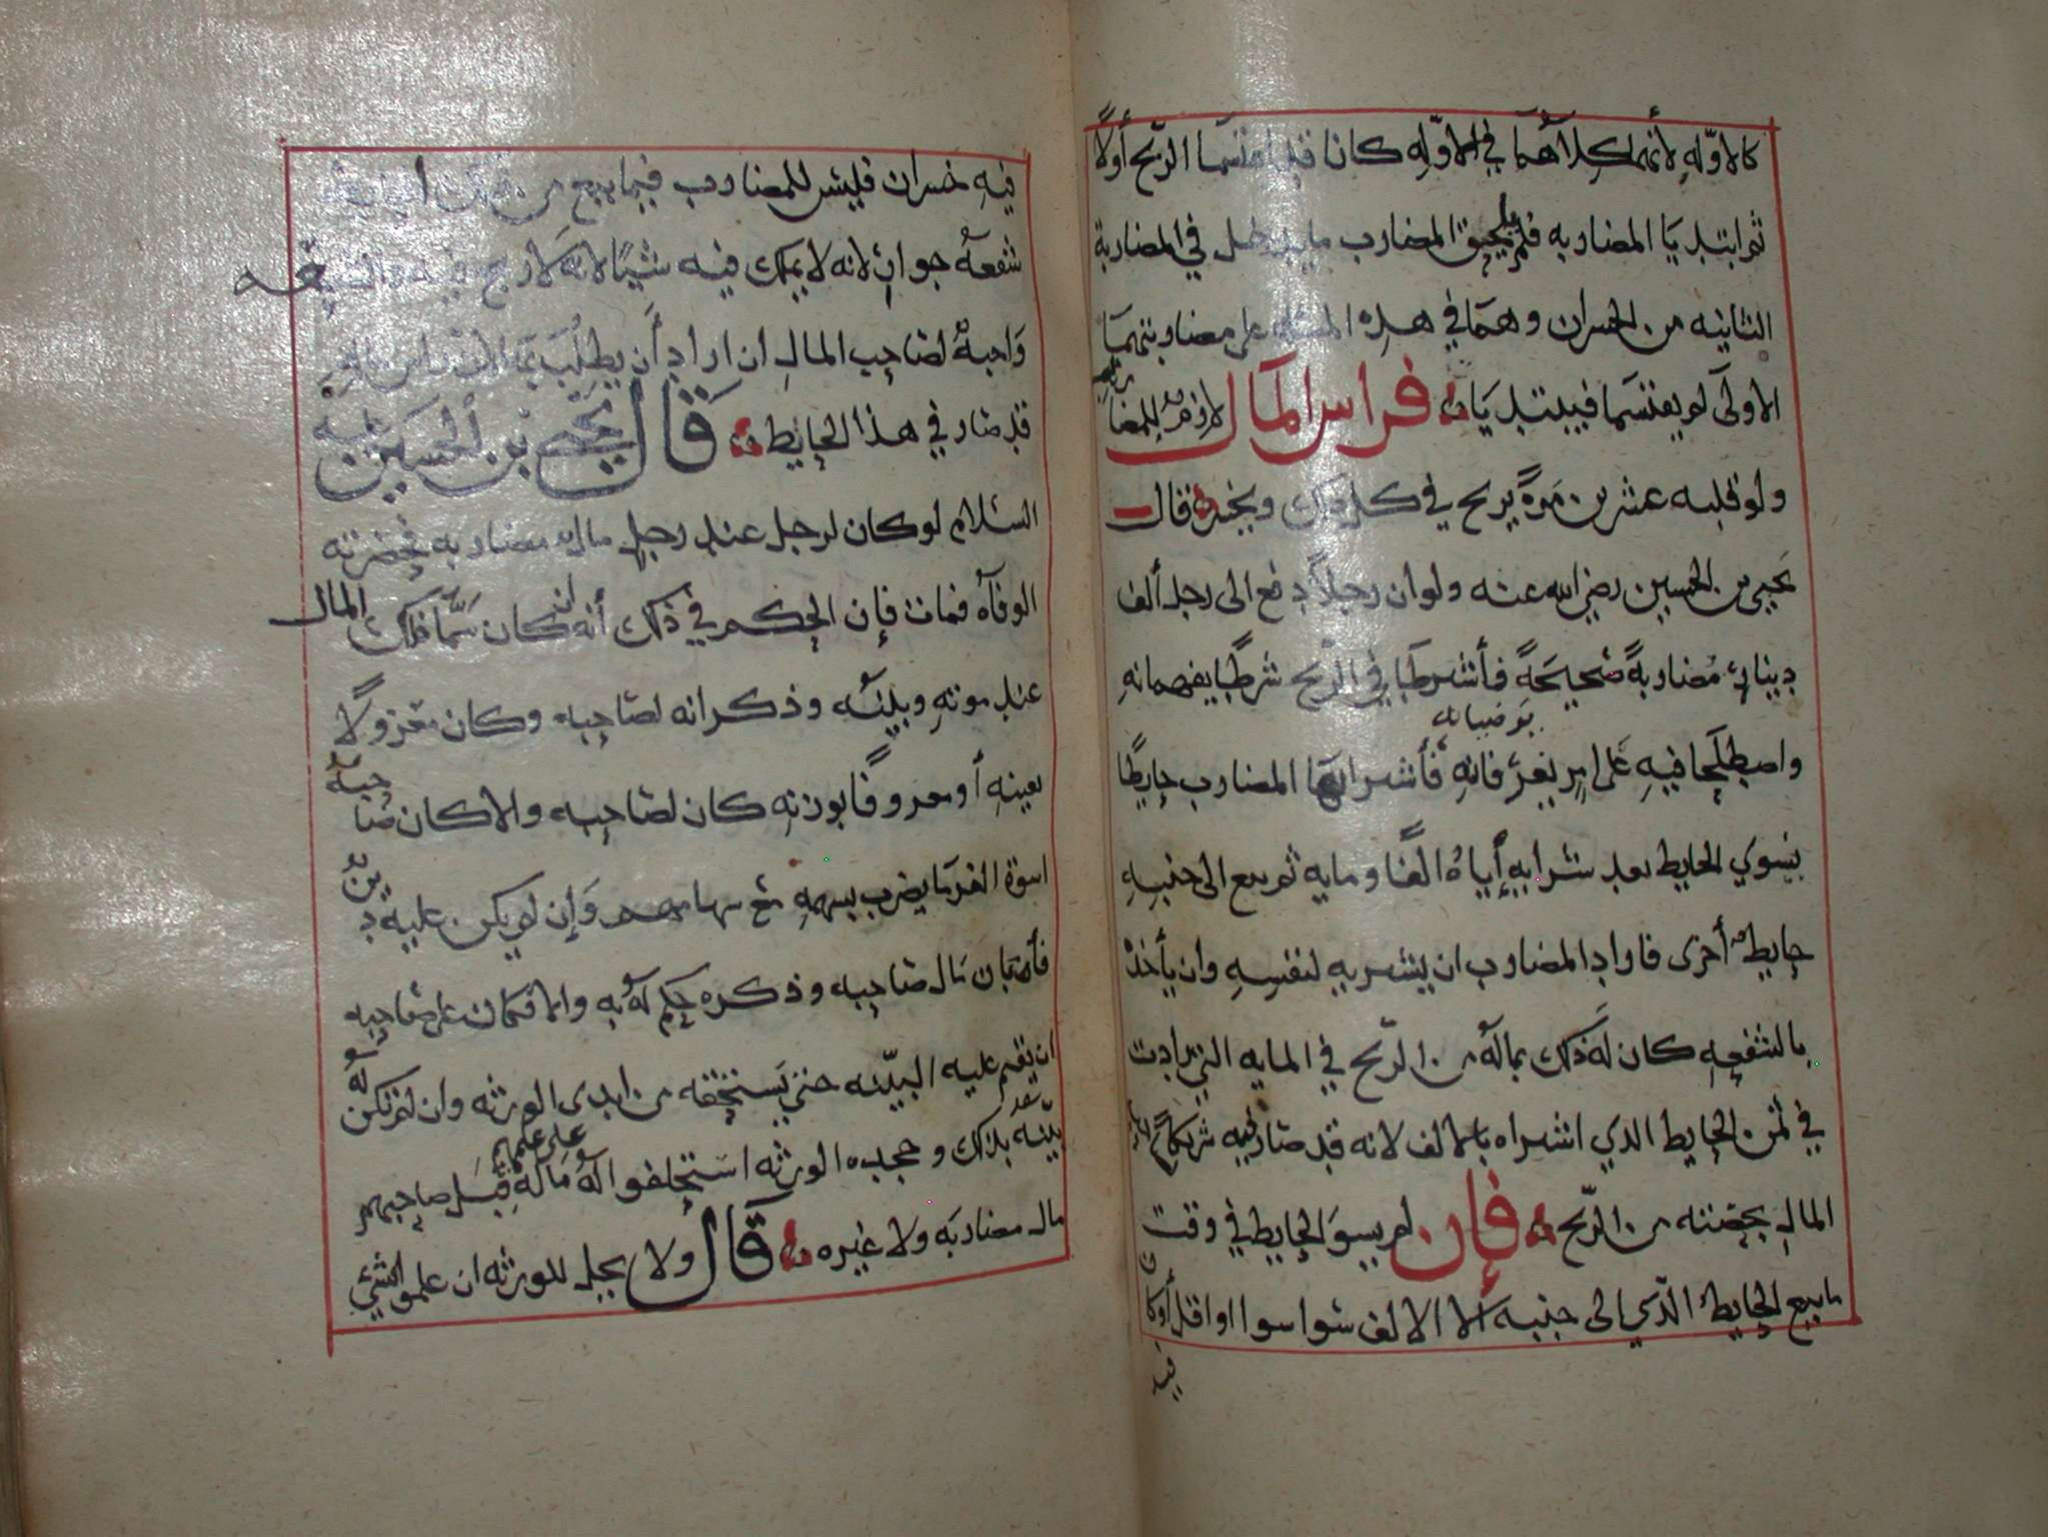 كالاوّله لأنهما كلاهما في الاوّله كانا قد اقتسما الربح أولاً
ثم ابتديا المضاربه فلم يلحق المضارب ما يدخل في المضاربة
الثانيه من الخسران وهما في هذه المسئله على مضاربتهما
الاولى لم يقتسما فيبتديان فراس المال لازم للمضاربه
ولو قلبه عشرين مرة يربح في كل ذلك ويخسر قال
يحيى بن الحسين رضي الله عنه ولو ان رجلاً دفع الى رجل ألف
دينار مضاربةً صحيحةً فأشرطا في الربح شرطًا يفهمانه
يرضيانه
واصطلحا فيه على امر يعرفانه فأشرا بها المضارب حايطًا
يسوي الحايط بعد شرايه إياه الفًا ومايه ثم بيع الى جنبه
حايط أخرى فاراد المضارب ان يشريه لنفسه وان يأخذ
بالشفعه كان له ذلك بماله من الربح في المايه التي زادت
في ثمن الحايط الذي اشراه بالالف لانه قد صار فيه شريكًا
المال بحصته من الربح فإن لم يسو الحايط في وقت
ما بيع الحايط الذي الى جنبه الا الالف سوا سوا او اقل أو كان
فيه
فيه خسران فليس للمضارب فيما بيع من
شفعه جوار لانه لا يملك فيه شيئًا لانه لا ربح فيه والشفعه
واجبة لصاحب المال ان اراد أن يطلب بها لان راس ماله
قد صار في هذا الحايط قال يحيى بن الحسين عليه
السلام لو كان لرجل عند رجل مال مضاربه فحضرته
الوفاه فمات فإن الحكم في ذلك أنه ان كان سمّا ذلك المال
عند موته وبينه وذكر انه لصاحبه وكان معزولاً
بعينه أو معروفًا بوزنه كان لصاحبه والا كان صاحبه
اسوة الغرما يضرب بسهمه مع سهامهم وإن لم يكن عليه دين
فأبان مال صاحبه وذكره حكم له به والا فكان على صاحبه
ان يقيم عليه البيّنه حتى يستحقه من ايدي الورثه وان لم تكن له
بيّنه بذلك وجحده الورثه استحلفوا له ماله قبل صاحبهم
على علمهم
مال مضاربه ولا غيره قال ولا يحل للورثه ان علموا لشي